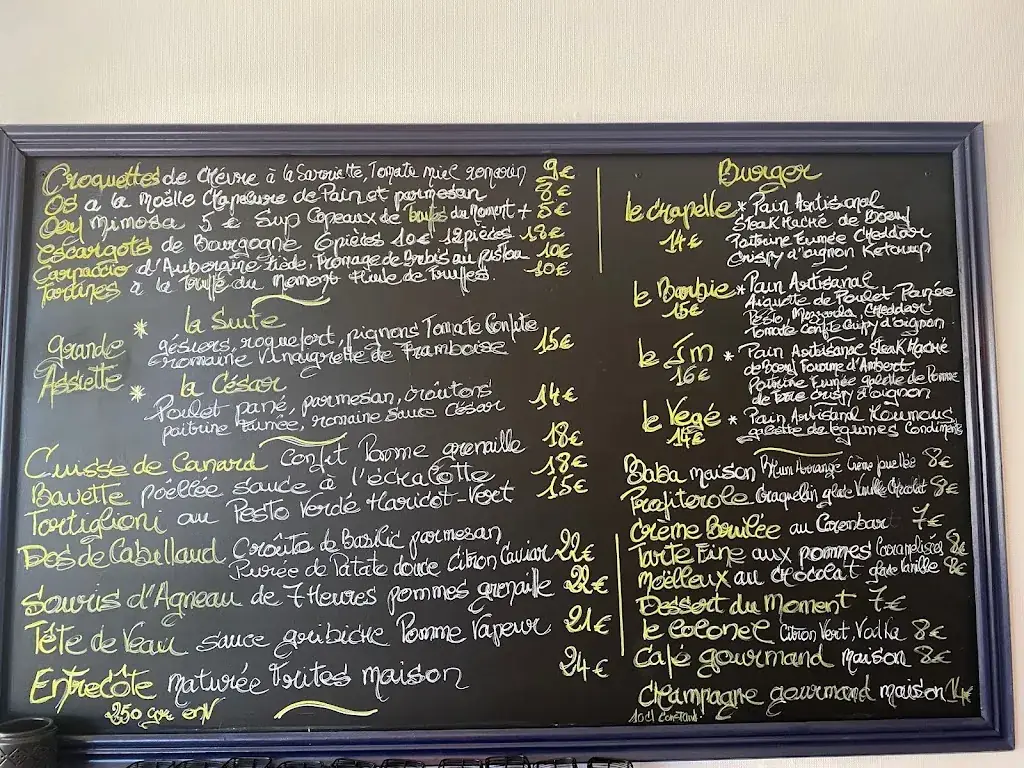 Croquettes de chèvre à la Sarriette, Tomate miel romarin 9€
Os a la moëlle chapelure de Pain et parmesan 8€
Oeuf mimosa 5€ Sup Copeaux de Truffes du Moment + 5€
Escargots de Bourgogne 6 pièces 10€ 12 pièces 18€
Carpaccio d'Aubergine tiède, Fromage de brebis au pistou 10€
Tartines a la Truffe du Moment Huile de Truffes 10€
* la Suite
Grande Assiette
gésiers, roquefort, pignons Tomate Confite 15€
romaine Vinaigrette de Framboise
* la César
Poulet pané, parmesan, croûtons 14€
poitrine fumée, romaine sauce César
Cuisse de Canard Confit Pomme grenaille 18€
Bavette poêllée sauce à l'échalotte 18€
Tortiglioni au Pesto Verde Haricot-Vert 15€
Dos de Cabillaud Croûte de Basilic parmesan
Purée de Patate douce Citron Caviar 22€
Souris d'Agneau de 7 Heures pommes grenaille 22€
Tête de Veau sauce gribiche Pomme Vapeur 21€
Entrecôte maturée frites maison 24€
250 gr env
Burger
le chapelle * Pain Artisanal
14€ Steak Haché de Boeuf
Poitrine Fumée Cheddar
Crispy d'oignon Ketchup
le Barbie * Pain Artisanal
15€ Aiguillette de Poulet Panée
Pesto, Mozzarella, Cheddar
Tomate confite Crispy d'oignon
le Jm * Pain Artisanal Steak Haché
16€ de Boeuf Fourme d'Ambert
Poitrine Fumée galette de Pomme
de Terre crispy d'oignon
le Vegé * Pain Artisanal Houmous
14€ galette de légumes Condiments
Baba maison Rhum Arrangé Crème fouettée 8€
Profiterole Craquelin glace Vanille Chocolat 8€
Crème Brulée au Carambar 7€
Tarte Fine aux pommes Caramelisées 8€
Moëlleux au chocolat glace Vanille 8€
Dessert du Moment 7€
le Colonel Citron Vert, Vodka 8€
Café gourmand maison 8€
Champagne gourmand maison 14€
10cl